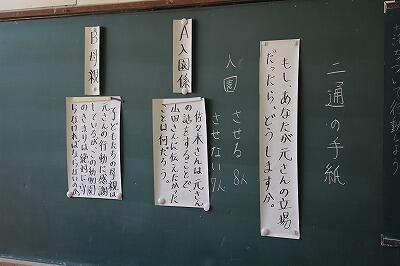 二通の手紙
もし、あなたが元さんの立場
だったら、どうしますか。
入園 させる 8人
させない 7人
A 入園係
佐々木さんは元さん
の話をすることで、
山田さんに伝えたかった
ことは何だろう。
B 母親
子どもたちの母親は
元さんの行動に感謝
しているが、この動物園
のきまりは絶対に守